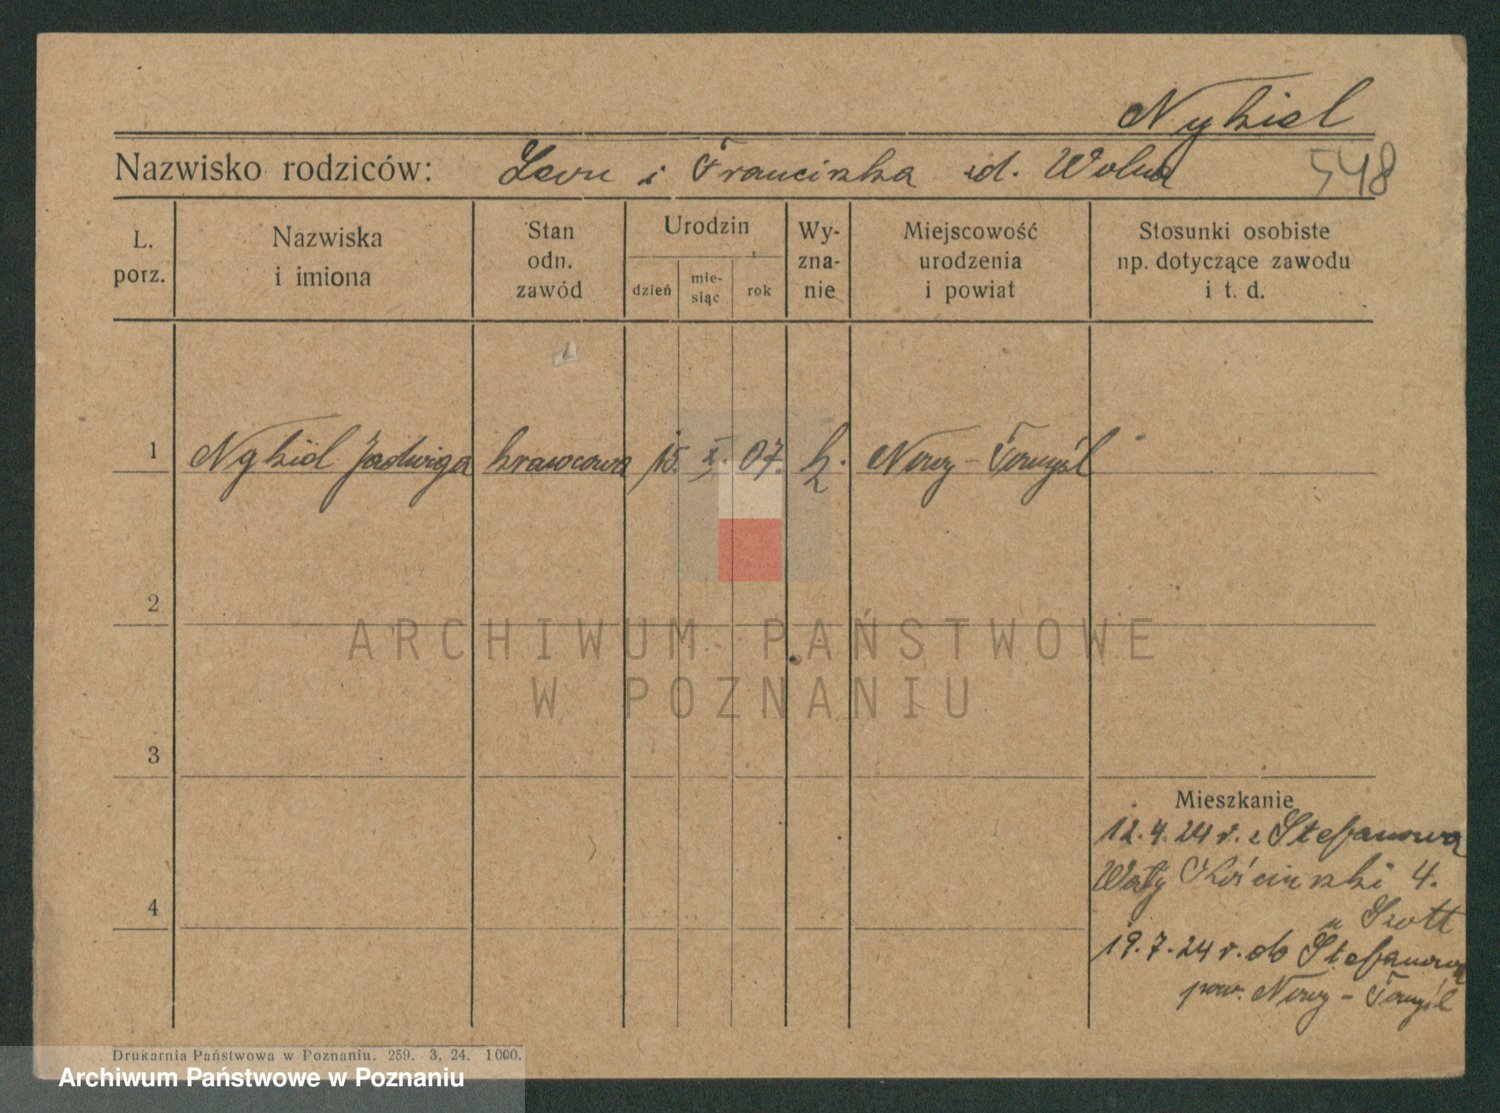 Nykiel
Nazwisko rodziców: Leon i Franciszka zd. Wolna 548
L. porz.
Nazwiska i imiona
Stan odn. zawód
Urodzin
dzień
mie-
siąc
rok
Wy-
zna-
nie
Miejscowość urodzenia i powiat
Stosunki osobiste np. dotyczące zawodu i t. d.
1 Nykiel Jadwiga krawcowa 15. X. 07. k. Nowy-Tomyśl
2
ARCHIWUM PAŃSTWOWE
W POZNANIU
3
Mieszkanie
12.4.24 r. z Stefanowa
Wały Kościuszki 4.
u Szott
4
19.7.24 r. do Stefanowa
pow. Nowy-Tomyśl
Drukarnia Państwowa w Poznaniu. 259. 3. 24. 1000.
Archiwum Państwowe w Poznaniu